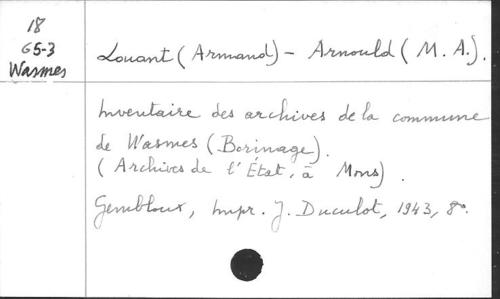 18
G5-3
Wasmes
Louant (Armand) - Arnould (M. A.).
Inventaire des archives de la commune
de Wasmes (Borinage).
(Archives de l'État, à Mons).
Gembloux, Impr. J. Duculot, 1943, 8o.